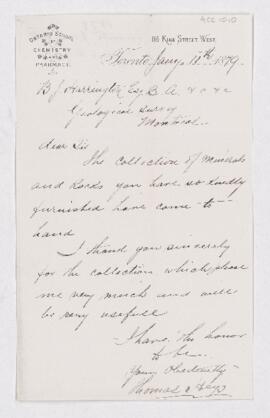 ACC 1010
ONTARIO SCHOOL
OF
CHEMISTRY
AND
PHARMACY.
116 KING STREET WEST,
Toronto, Jany. 11th 1879.
B J Harrington Esq. B. A. &c &c
Geological Survey
Montreal.
Dear Sir
The collection of minerals
and Rocks you have so kindly
furnished have come to
hand
I thank you sincerely
for the collection, which please
me very much and will
be very usefull
I have the honor
to be
Your Obediently
Thomas